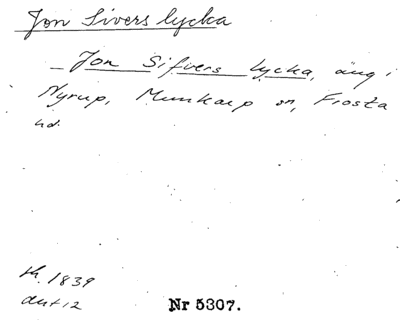 Jon Sivers lycka
Jon Sifvers lycka, äng i
Nyrup, Munkarp sn, Frosta
hd.
1839
akt 12
Nr 5307.